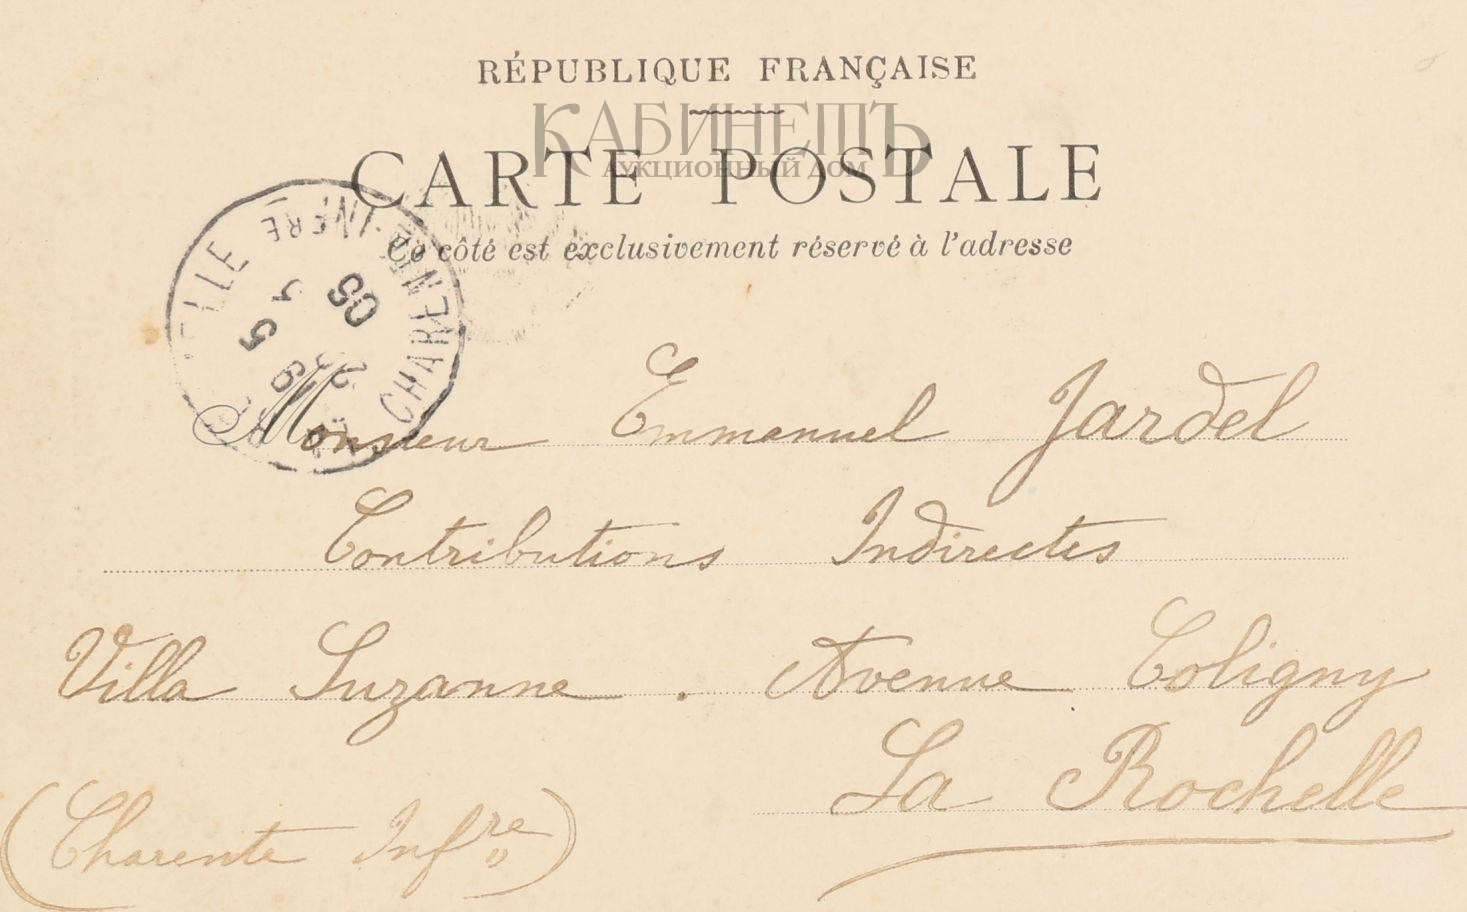 RÉPUBLIQUE FRANÇAISE
КАБИНЕТЪ
АУКЦИОННЫЙ ДОМ
CARTE POSTALE
Ce côté est exclusivement réservé à l'adresse
LA ROCHELLE CHARENTE-INFRE
05
Monsieur Emmanuel Jardel
Contributions Indirectes
Villa Suzanne . Avenue Coligny
La Rochelle
(Charente Infre)